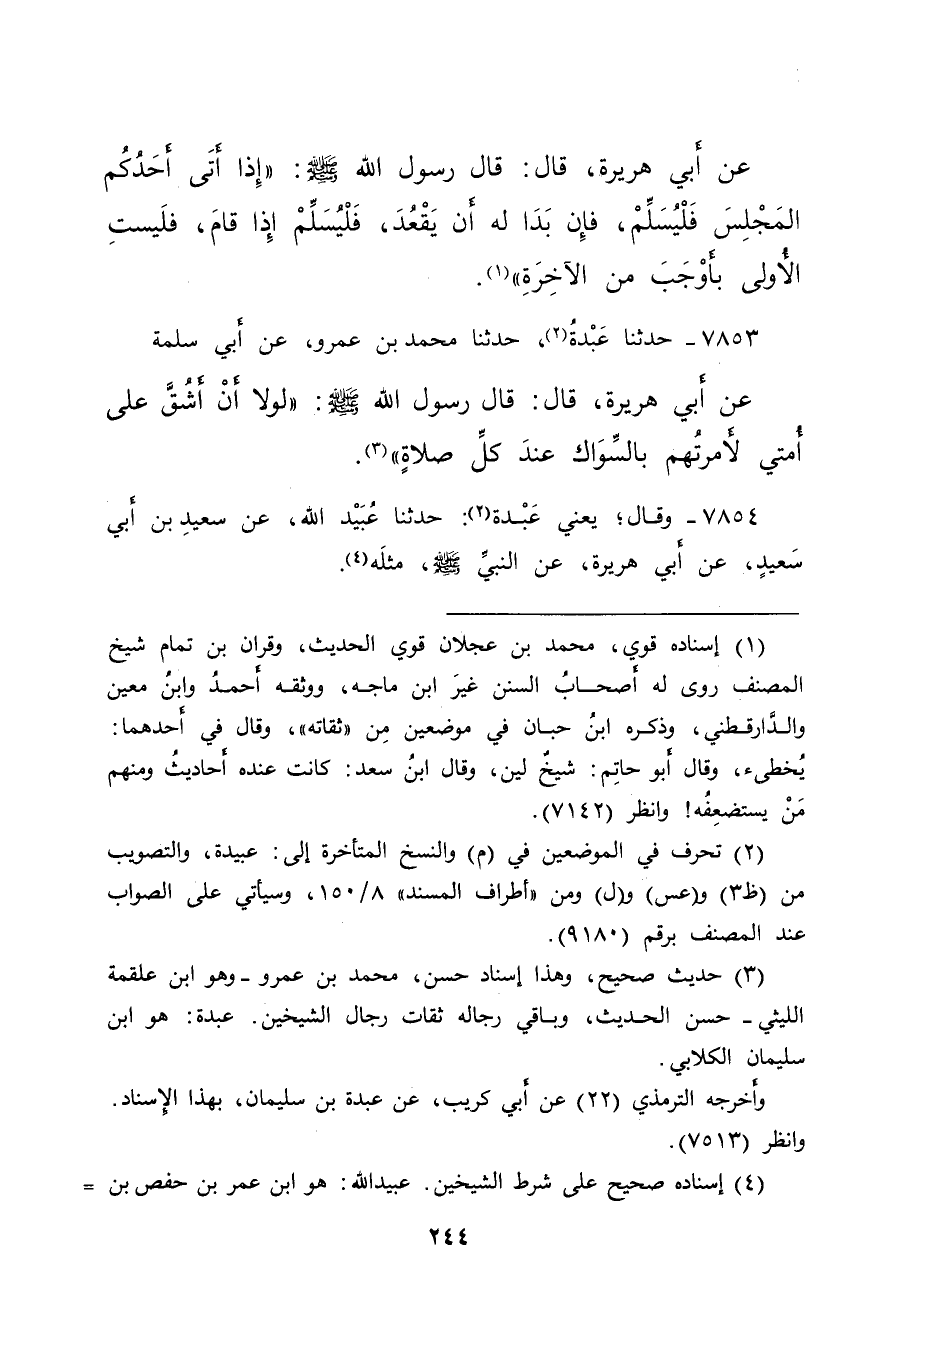 عن أَبي هريرة، قال: قال رسول الله ﷺ: «إِذا أَتَى أَحَدُكُم
المَجْلِسَ فَلْيُسَلِّمْ، فإِن بَدَا له أَن يَقْعُدَ، فَلْيُسَلِّمْ إِذا قامَ، فلَيستِ
الأُولى بأَوْجَبَ من الآخِرَةِ»(١).
٧٨٥٣ - حدثنا عَبْدةُ(٢)، حدثنا محمد بن عمرو، عن أَبي سلمة
عن أَبي هريرة، قال: قال رسول الله ﷺ: «لولا أَنْ أَشُقَّ على
أُمتي لأَمرتُهم بالسِّوَاك عندَ كلِّ صلاةٍ»(٣).
٧٨٥٤ - وقال؛ يعني عَبْدة(٢): حدثنا عُبَيْد الله، عن سعيدِ بن أَبي
سَعيدٍ، عن أَبي هريرة، عن النبيِّ ﷺ، مثلَه(٤).
(١) إسناده قوي، محمد بن عجلان قوي الحديث، وقران بن تمام شيخ
المصنف روى له أَصحابُ السنن غيرَ ابن ماجه، ووثقه أَحمدُ وابنُ معين
والدَّارقطني، وذكره ابنُ حبان في موضعين مِن «ثقاته»، وقال في أَحدهما:
يُخطىء، وقال أَبو حاتِم: شيخٌ لين، وقال ابنُ سعد: كانت عنده أَحاديثُ ومنهم
مَنْ يستضعِفُه! وانظر (٧١٤٢).
(٢) تحرف في الموضعين في (م) والنسخ المتأخرة إلى: عبيدة، والتصويب
من (ظ٣) و(عس) و(ل) ومن «أطراف المسند» ٨/١٥٠، وسيأتي على الصواب
عند المصنف برقم (٩١٨٠).
(٣) حديث صحيح، وهذا إسناد حسن، محمد بن عمرو - وهو ابن علقمة
الليثي - حسن الحديث، وباقي رجاله ثقات رجال الشيخين. عبدة: هو ابن
سليمان الكلابي.
وأَخرجه الترمذي (٢٢) عن أَبي كريب، عن عبدة بن سليمان، بهذا الإِسناد.
وانظر (٧٥١٣).
(٤) إسناده صحيح على شرط الشيخين. عبيدالله: هو ابن عمر بن حفص بن =
٢٤٤